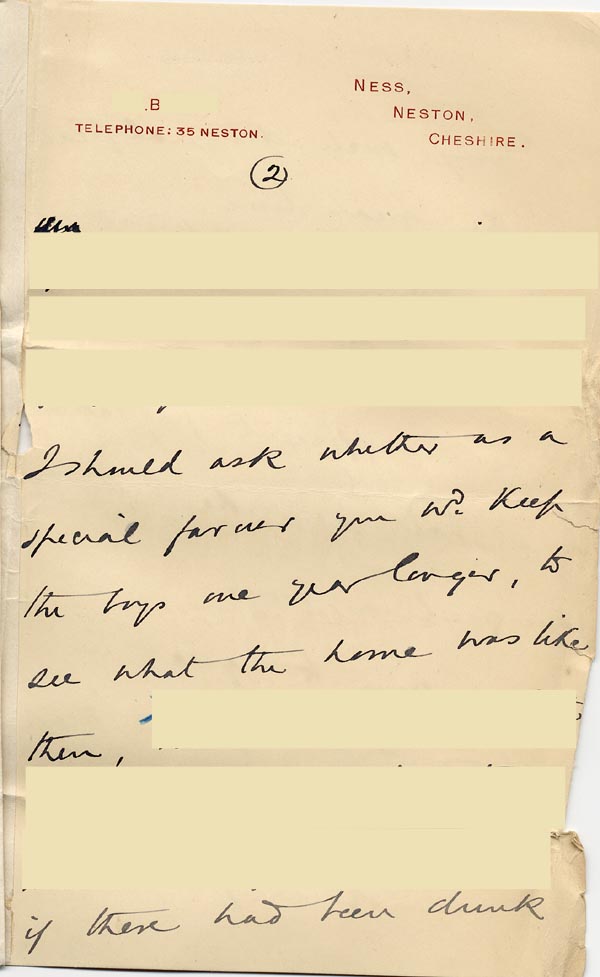 .B
TELEPHONE: 35 NESTON.
NESS,
NESTON,
CHESHIRE.
2
I should ask whether as a
special favour you wd. keep
the boys one year longer, to
see what the home was like
then,
if there had been drunk